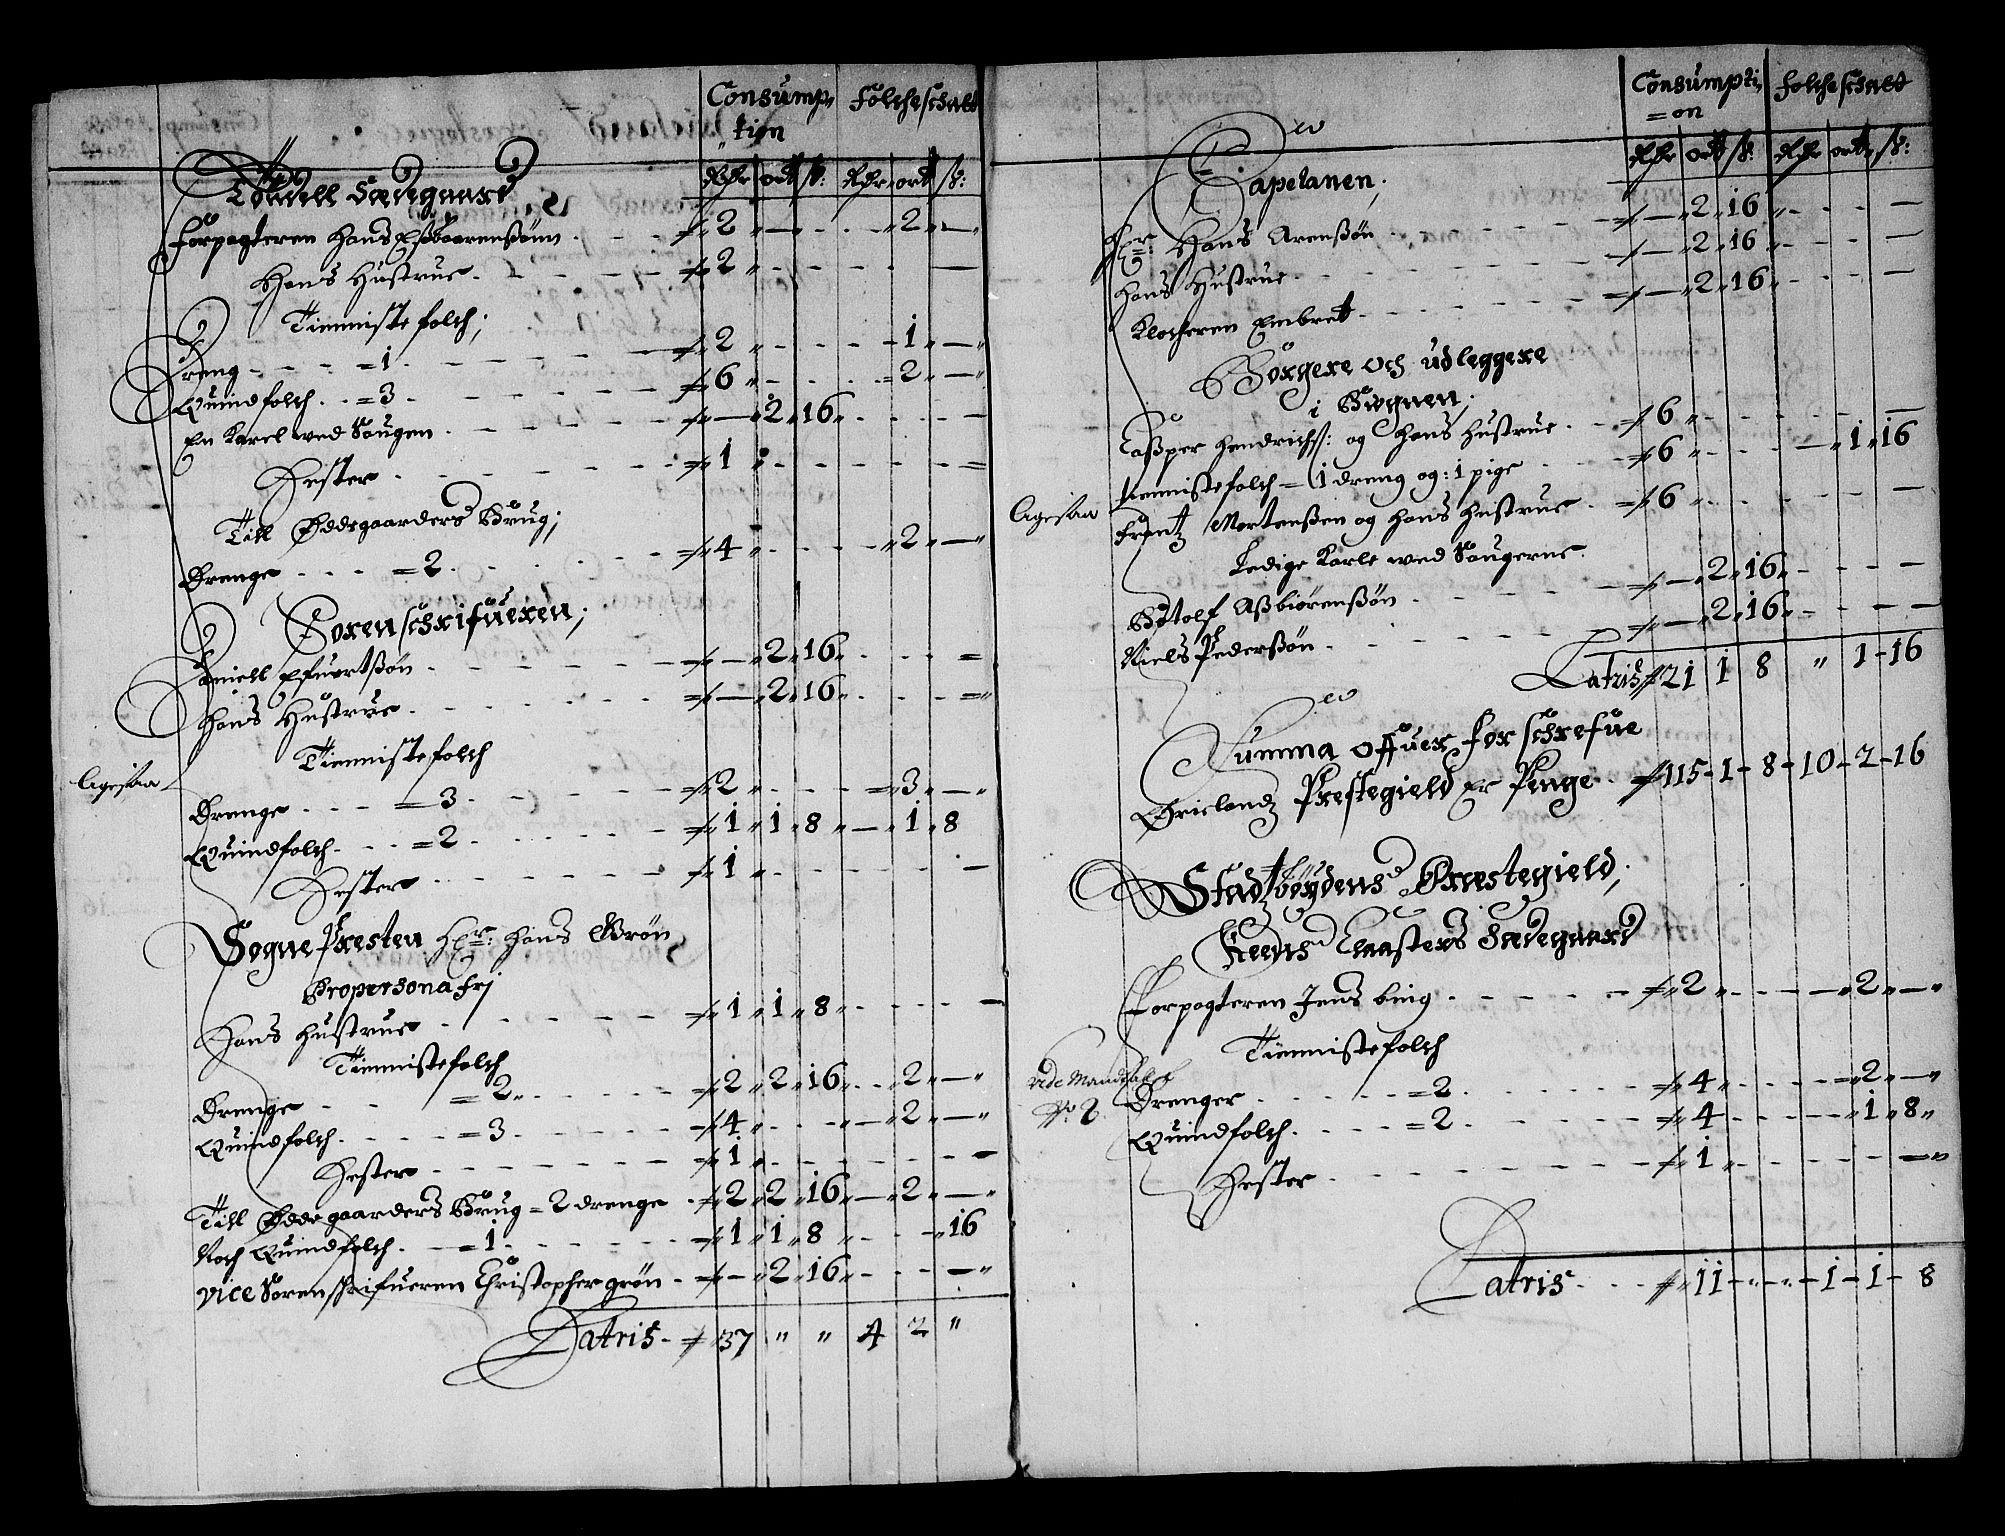 Consump„ Folcheschatt
tion
Rdr ort sk: Rdr ort sk:
Sædegaard
Forpagteren Hans Eßbaarenßønn - - - 2 „ — - - - „ 2 „ — „
Hans Hustrue - - - 2 „ - - - —
Tienniste folch;
Dreng - - - = 1 - - - 2 „ - - - 1 „ — „
Quindfolch - - = 3 - - - 6 „ - - - = 2 „ — „
En Karel wed Saugen - - - — „ 2 „ 16 „ - - - —
Hester - - - 1 „ - - - =
Till Øddegaarders Brug;
Drenge - - - = 2 - - - 4 „ - - - „ 2 „ — „
Sorenschrifueren;
Daniell Efuertßøn - - - — „ 2 „ 16 „ - - - =
Hans Hustrue - - - — „ 2 „ 16 „ - - - = „
Tienniste folch
Agesiaa
Drenge - - - = 3 - - - 2 „ - - - = 3 „ — „
Quindfolch - - - = 2 - - - 1 „ 1 „ 8 „ — „ 1 „ 8
Hester - - - 1 „ - - - —
Sogne Presten Hr: Hans Grøn
Propersona Frj
Hans Hustrue - - - 1 „ 1 „ 8 „ - - - —
Tiennistefolch
Drenge - - = 2 „ - - - 2 „ 2 „ 16 „ - - 2 „ — „
Quindfolch - - - = 3 - - - 4 „ - - - — 2 „ — „
Hester - - - 1 „ - - - —
Till Ødde gaarders Brug = 2 drenge - 2 „ 2 „ 16 „ — „ 2 „ — „
Noch Quindfolch - — = 1 - - - 1 „ 1 „ 8 „ - - - „ 16
Vice Sorenschrifueren Christopher grøn - — „ 2 „ 16 „ - - - — „
Latris - 37 „ „ 4 2 „
Consumpti„ Folcheschatt
= on
Rdr ort sk: Rdr ort „ sk:
Capelanen;
Hr: Hans Arenßøn - - - — „ 2 „ 16 „ - - - —
Hans Hustrue - - - — „ 2 „ 16 „ - - - —
Klocheren Embret - - - — „ 2 „ 16 „ - - - —
Borgere och udleggere
i Sognen;
Caßper Hendrichß: og Hans Hustrue - - 6 „ - - - —
tiennistefolch = 1 dreng og: 1 pige - - 6 „ - - - — „ 1 „ 16
Agesiaa
Frantz Mortenßen og Hans Hustrue - 6 „ - - - —
Ledige Karle wed Saugerne
Botolf Aßbiørenßøn - - - — „ 2 „ 16 „ - - - —
Niels Pederßøn - - - — „ 2 „ 16 „ - - - —
Latris 21 1 8 „ 1 - 16
Summa offuer for schrefue
Ørielandz Prestegield Er Penge - 115 - 1 - 8 - 10 - 2 - 16
Stadtzbøydens Præstegield;
Reens Claasters Sædegaard
Forpagteren Jens bing - - - 2 „ - - - — „ 2 „ — „
Tiennistefolch
Vide Mandtallet
No 2
Drenger - - - = 2 - - - 4 „ - - - = „ 2 „ — „
Quindfolch - - - = 2 - - - 4 „ - - - — „ 1 „ 8 „
Hester - - - 1 „ - - - — „
Latris - - - 11 - „ - „ - 1 - 1 - 8